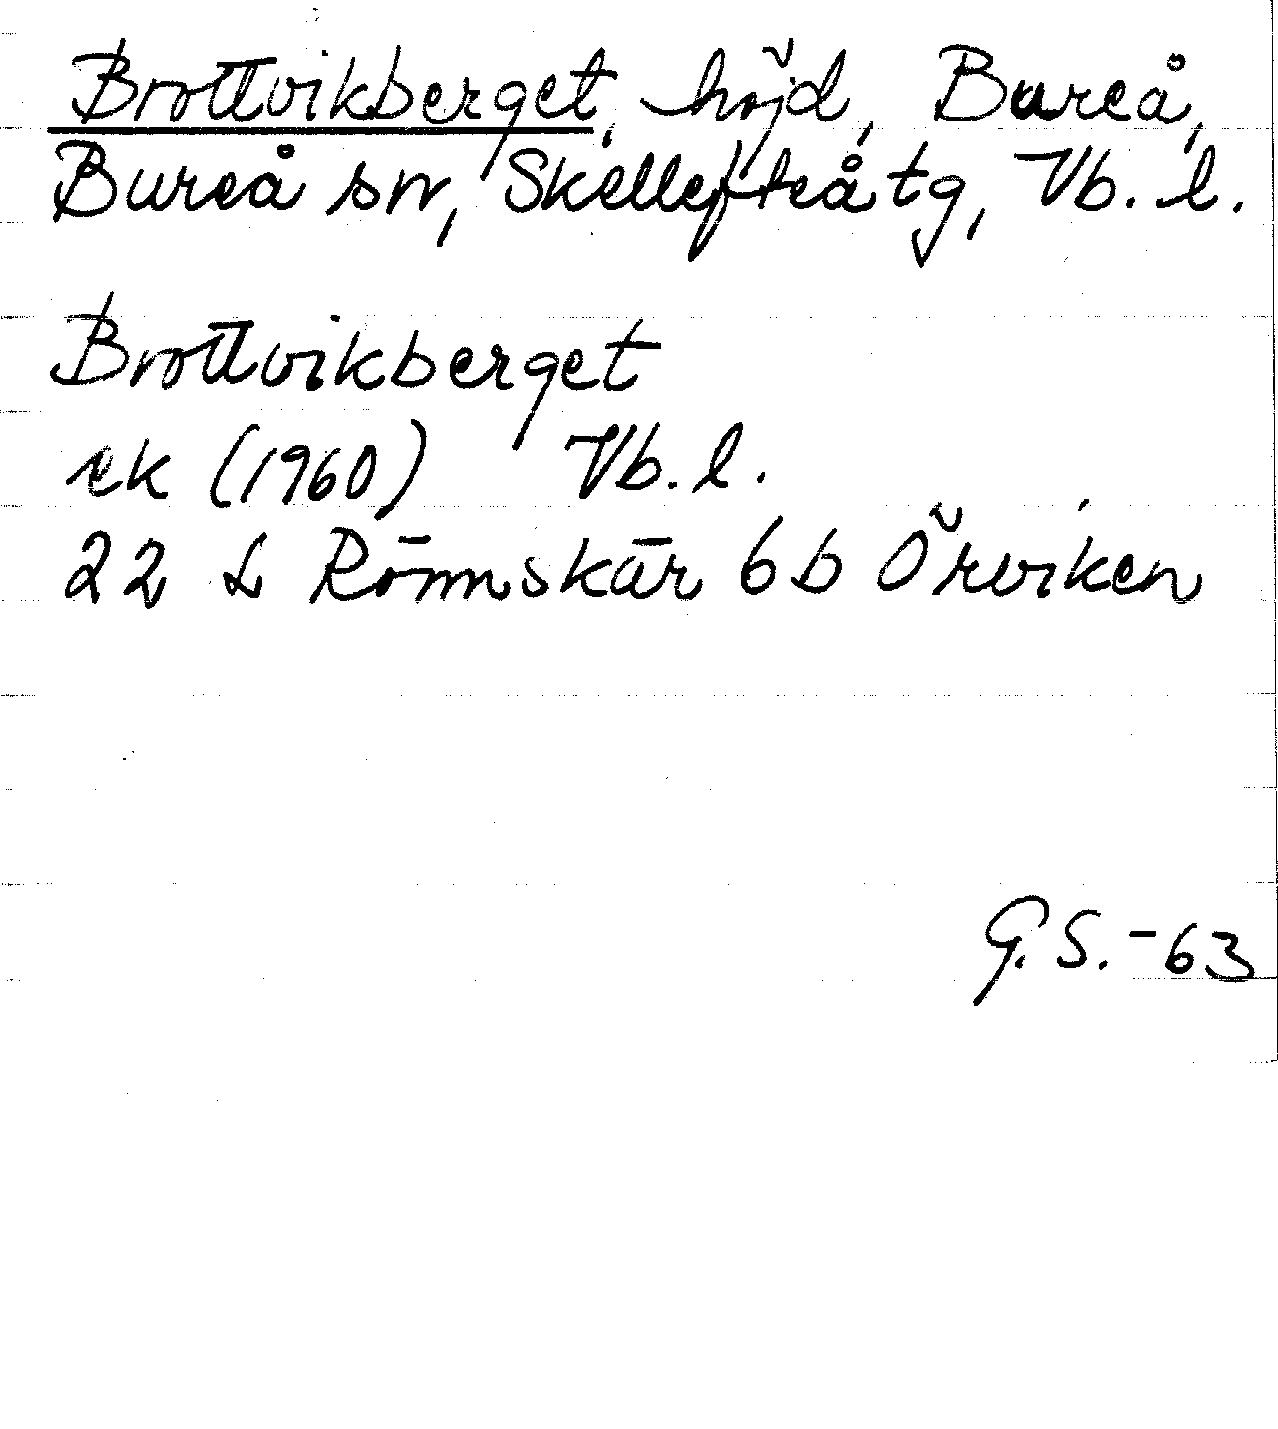 Brottvikberget, höjd, Bureå,
Bureå sn, Skellefteå tg, Vb. l.
Brottvikberget
ek (1960) Vb. l.
22 L Rönnskär 6b Örviken
G. S. -63